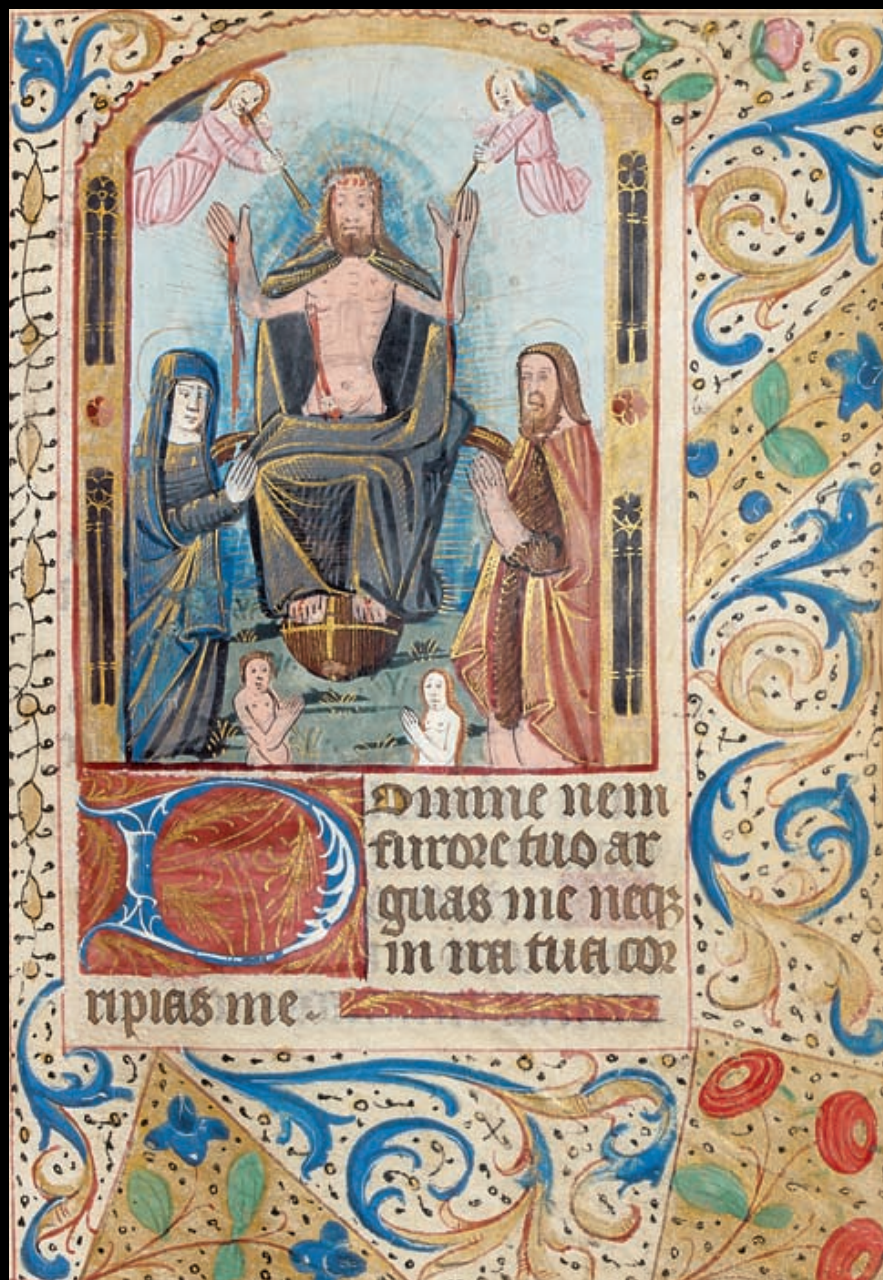 Domine ne in
furore tuo ar
guas me neqz
in ira tua cor
ripias me